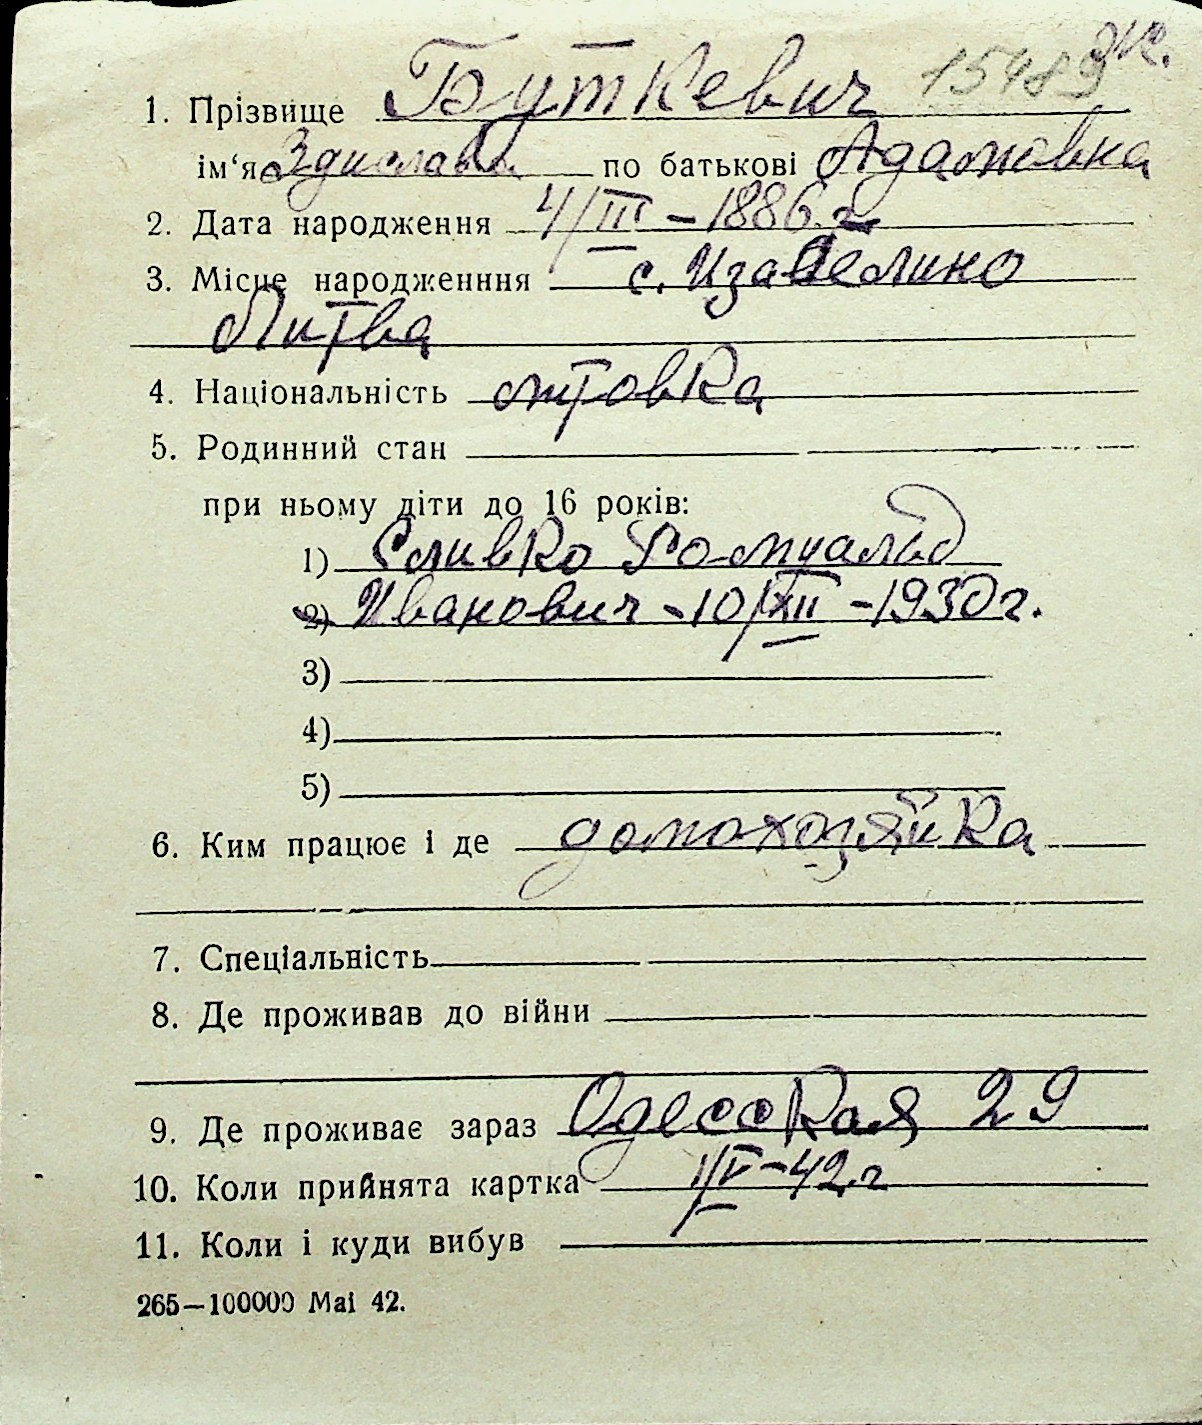 15489 ЭК.
1. Прізвище Буткевич
ім‘я Здислава по батькові Адамовна
2. Дата народження 4/III – 1886 г.
3. Місце народженння с. Изабелино
Литва
4. Національність литовка
5. Родинний стан
при ньому діти до 16 років:
1) Сливко Ромуальд
2) Иванович - 10/XII - 1930 г.
3)
4)
5)
6. Ким працює і де домохозяйка
7. Спеціальність
8. Де проживав до війни
9. Де проживає зараз Одесская 29
10. Коли прийнята картка 1/V - 42 г
11. Коли і куди вибув
265—100000 Маі 42.